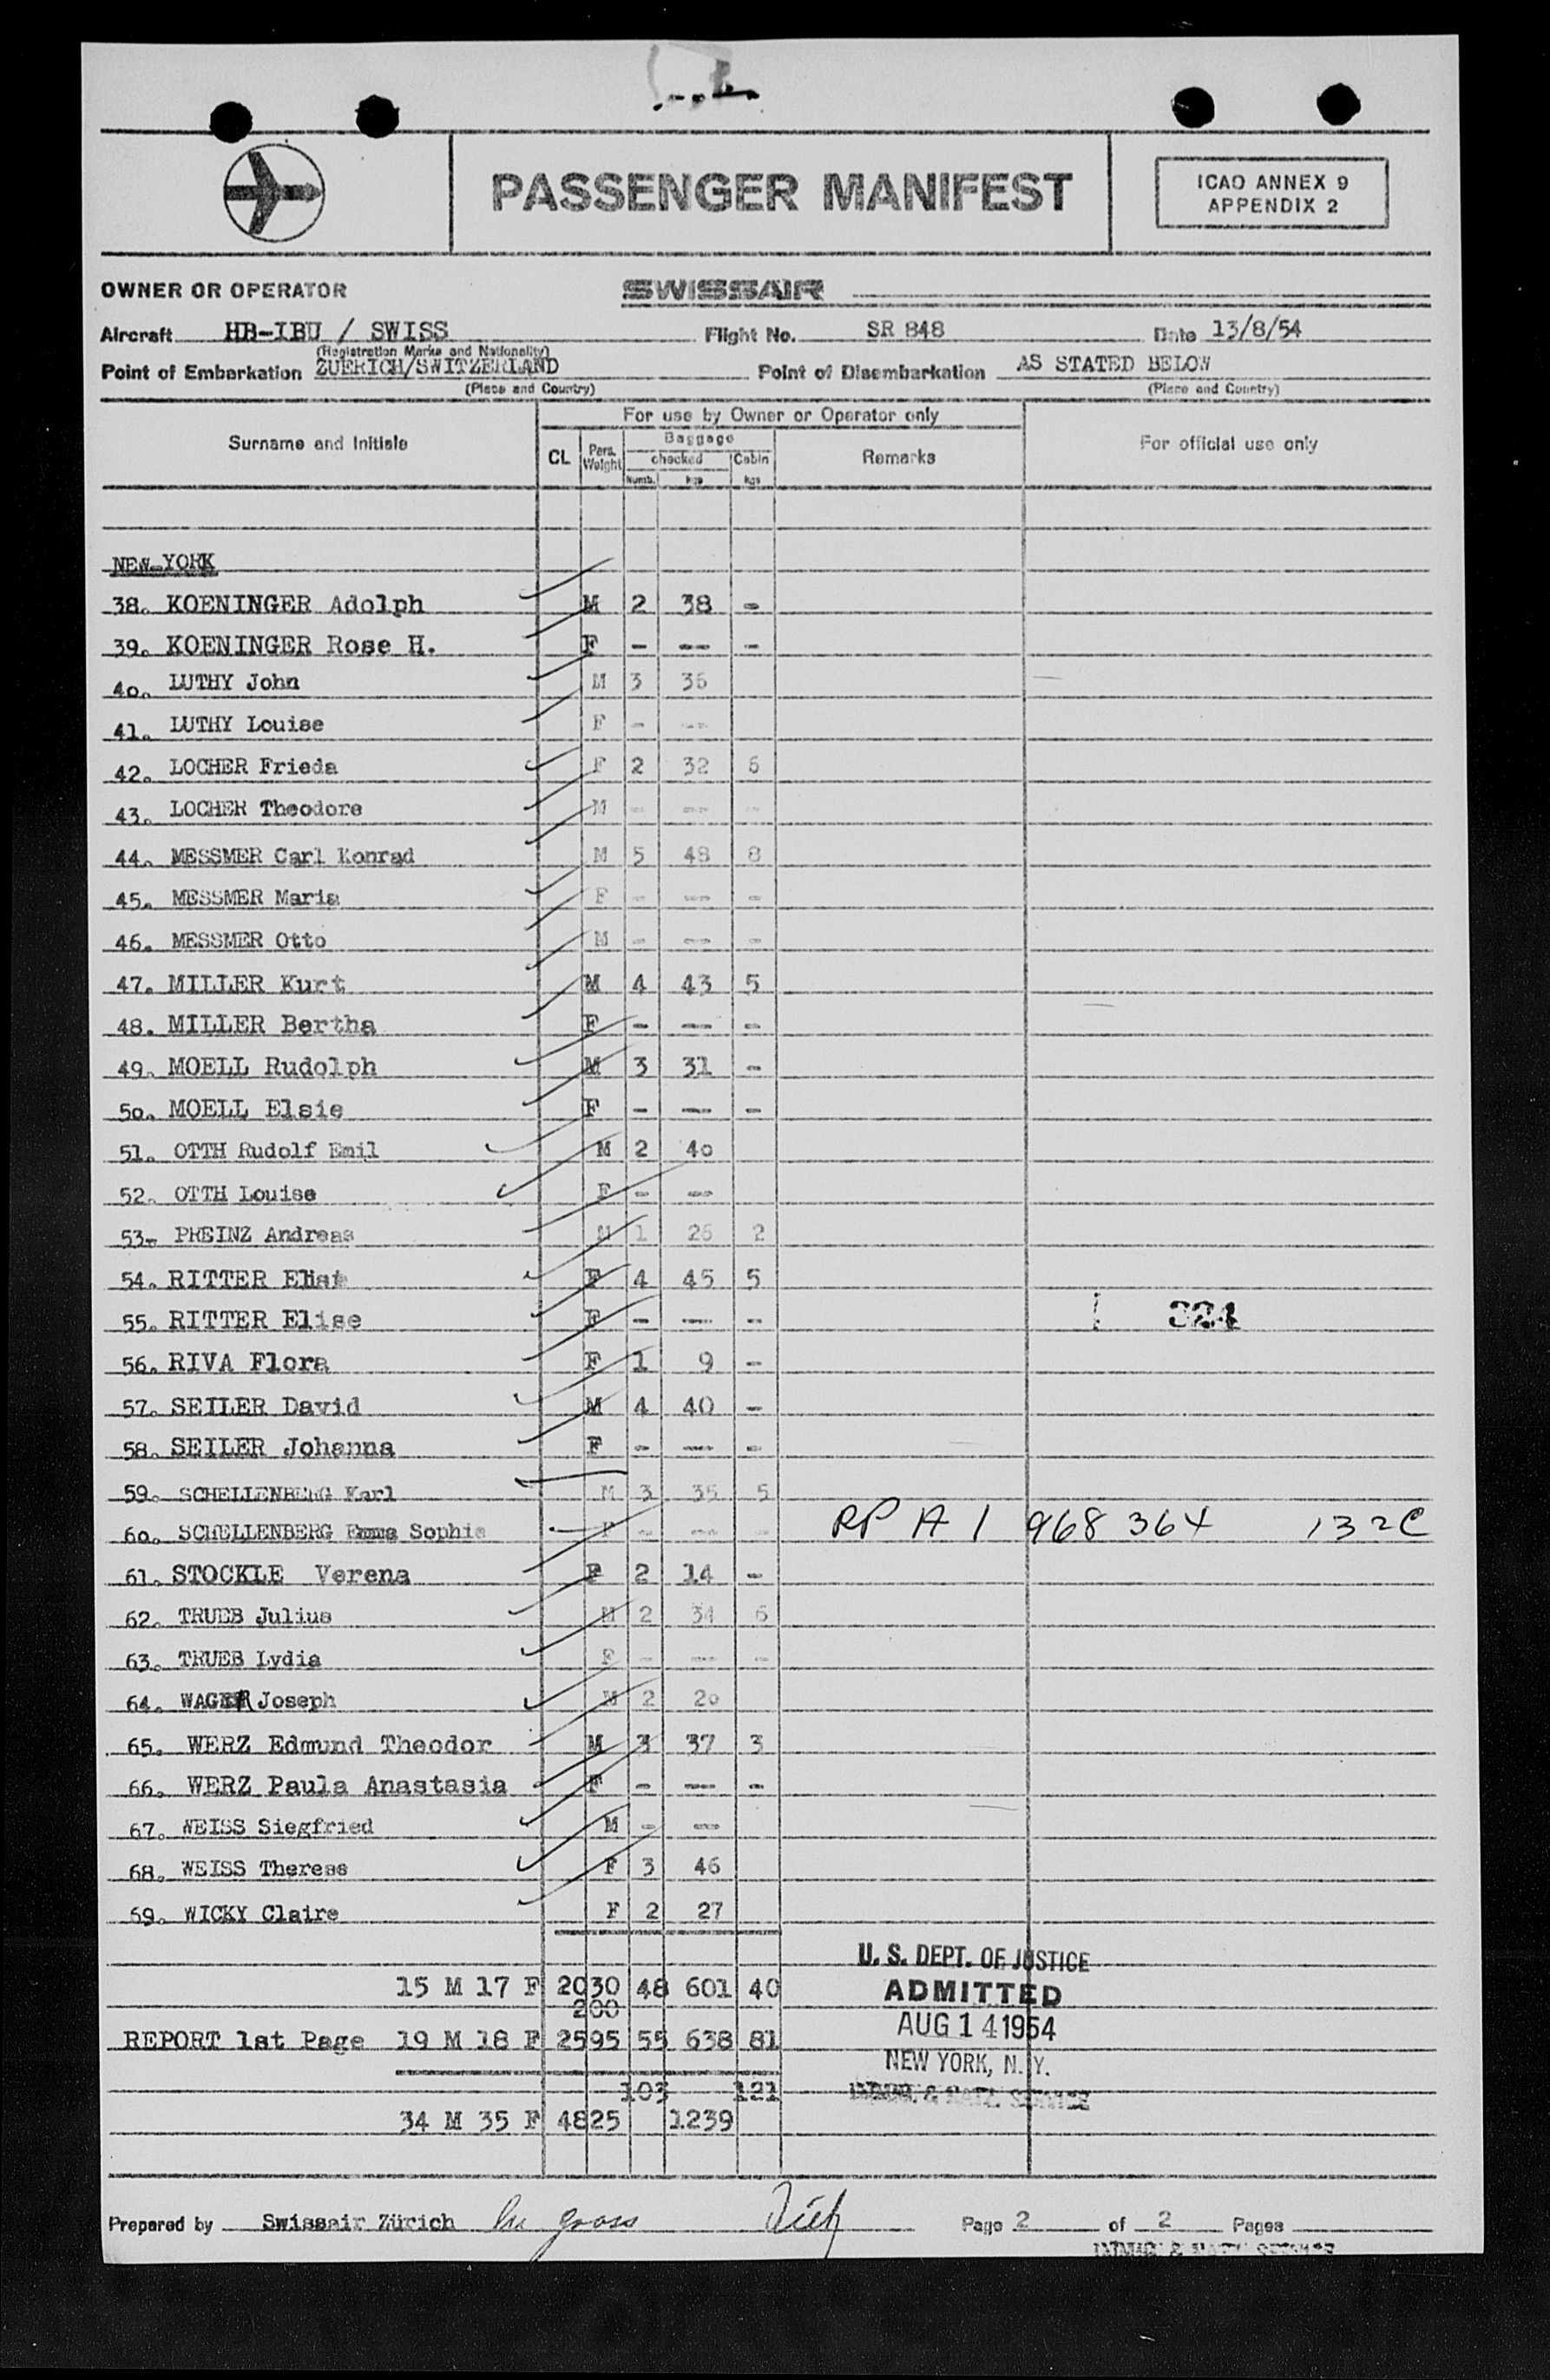 PASSENGER MANIFEST
ICAO ANNEX 9
APPENDIX 2
OWNER OR OPERATOR SWISSAIR
Aircraft HB-IBU / SWISS Flight No. SR 848 Date 13/8/54
(Registration Marks and Nationality)
Point of Embarkation ZUERICH/SWITZERLAND Point of Disembarkation AS STATED BELOW
(Place and Country) (Place and Country)
Surname and Initials For use by Owner or Operator only For official use only
CL Pers. Weight Baggage Remarks
checked Cabin
Numb. kgs kgs
NEW YORK
38. KOENINGER Adolph M 2 38 -
39. KOENINGER Rose H. F - -- -
40. LUTHY John M 3 36
41. LUTHY Louise F - --
42. LOCHER Frieda F 2 32 6
43. LOCHER Theodore M - -- -
44. MESSMER Carl Konrad M 5 48 8
45. MESSMER Maria F - -- -
46. MESSMER Otto M - -- -
47. MILLER Kurt M 4 43 5
48. MILLER Bertha F - -- -
49. MOELL Rudolph M 3 31 -
50. MOELL Elsie F - -- -
51. OTTH Rudolf Emil M 2 40
52. OTTH Louise F - --
53. PREINZ Andreas M 1 26 2
54. RITTER F 4 45 5
55. RITTER Elise F - -- - 324
56. RIVA Flora F 1 9 -
57. SEILER David M 4 40 -
58. SEILER Johanna F - -- -
59. SCHELLENBERG Karl M 3 35 5
60. SCHELLENBERG Emma Sophie F - -- - RP A 1 968 364 132C
61. STOCKLE Verena F 2 14 -
62. TRUEB Julius M 2 34 6
63. TRUEB Lydia F - -- -
64. WAGNER Joseph M 2 20
65. WERZ Edmund Theodor M 3 37 3
66. WERZ Paula Anastasia F - -- -
67. WEISS Siegfried M - --
68. WEISS Therese F 3 46
69. WICKY Claire F 2 27
U. S. DEPT. OF JUSTICE
15 M 17 F 2030 48 601 40 ADMITTED
200
REPORT 1st Page 19 M 18 F 2595 55 638 81 AUG 14 1954
NEW YORK, N. Y.
103 121 IMMIG. & NATZ. SERVICE
34 M 35 F 4825 1239
Prepared by Swissair Zürich Page 2 of 2 Pages
IMMIG. & NATZ. SERVICE